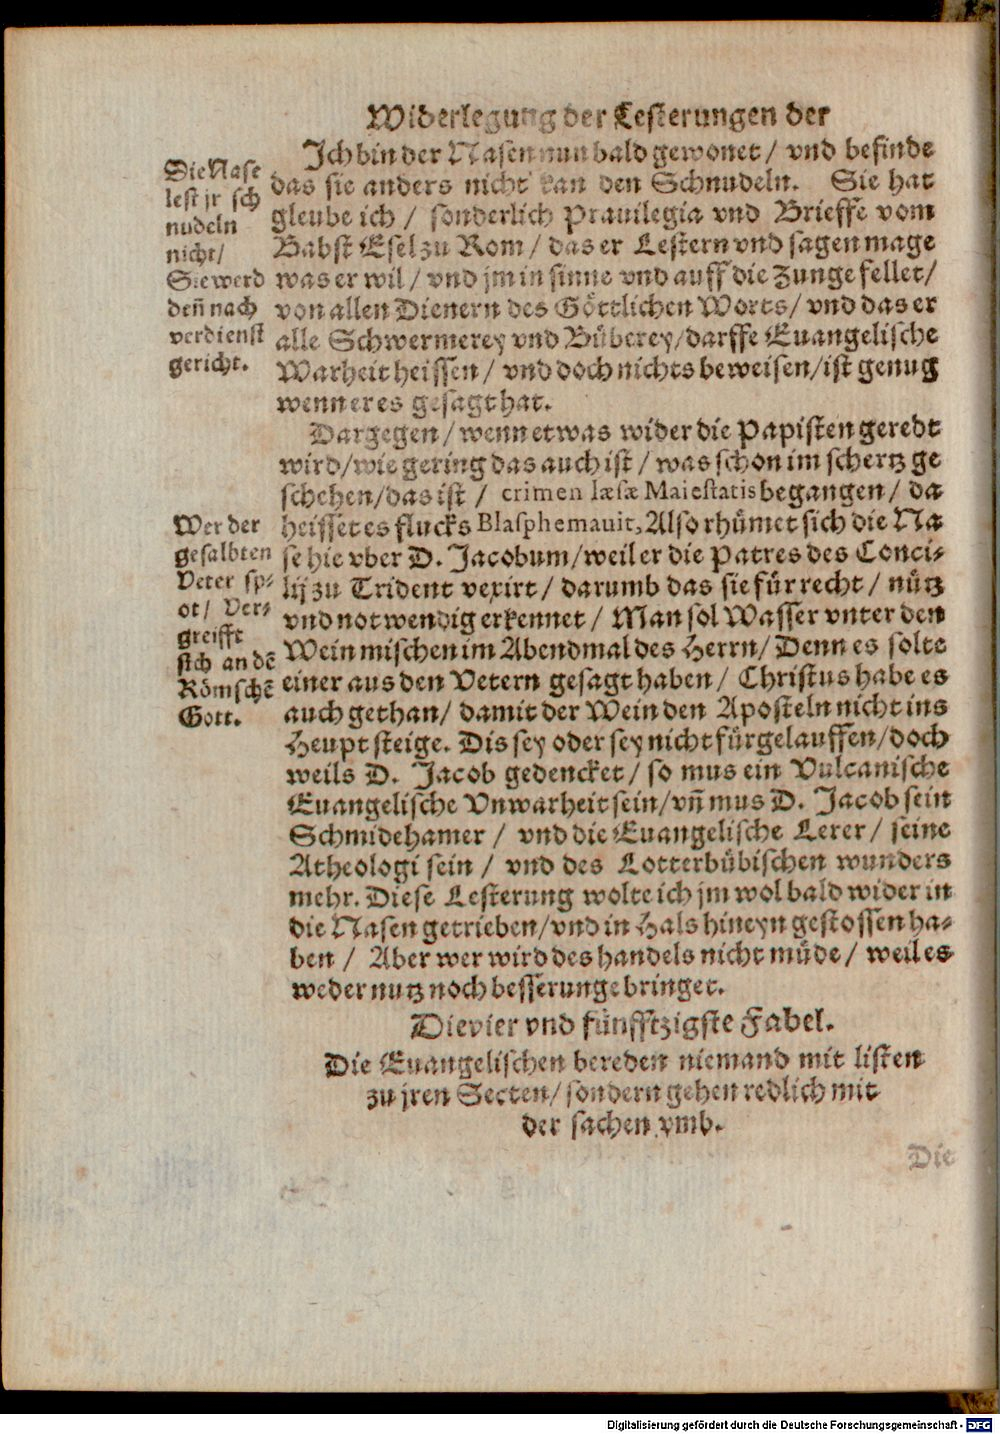 Widerlegung der Lesterungen der
Ich bin der Nasen nun bald gewonet / vnd befinde
das sie anders nicht kan den Schnudeln. Sie hat
gleube ich / sonderlich Prauilegia vnd Brieffe vom
Babst Esel zu Rom / das er Lestern vnd sagen mage
was er wil / vnd jm in sinne vnd auff die Zunge fellet /
von allen Dienern des Göttlichen Worts / vnd das er
alle Schwermerey vnd Büberey / darffe Euangelische
Warheit heissen / vnd doch nichts beweisen / ist genug
wenn er es gesagt hat.
Die Nase
lest jr sch
nudeln
nicht /
Sie werd
deñ nach
verdienst
gericht.
Dargegen / wenn etwas wider die Papisten geredt
wird / wie gering das auch ist / was schon im schertz ge
schehen / das ist / crimen læsæ Maiestatis begangen / da
heisset es flucks Blasphemauit, Also rhümet sich die Na
se hie vber D. Jacobum / weil er die Patres des Conci-
lij zu Trident vexirt / darumb das sie für recht / nütz
vnd notwendig erkennet / Man sol Wasser vnter den
Wein mischen im Abendmal des Herrn / Denn es solte
einer aus den Vetern gesagt haben / Christus habe es
auch gethan / damit der Wein den Aposteln nicht ins
Heupt steige. Dis sey oder sey nicht fürgelauffen / doch
weils D. Jacob gedencket / so mus ein Vulcanische
Euangelische Vnwarheit sein / vñ mus D. Jacob sein
Schmidehamer / vnd die Euangelische Lerer / seine
Atheologi sein / vnd des Lotterbübischen wunders
mehr. Diese Lesterung wolte ich jm wol bald wider in
die Nasen getrieben / vnd in Hals hineyn gestossen ha-
ben / Aber wer wird des handels nicht müde / weil es
weder nutz noch besserunge bringet.
Wer der
gesalbten
Veter sp-
ot / Ver-
greifft
sich an dẽ
Römschẽ
Gott.
Die vier vnd fünfftzigste Fabel.
Die Euangelischen bereden niemand mit listen
zu jren Secten / sondern gehen redlich mit
der sachen vmb.
Die
Digitalisierung gefördert durch die Deutsche Forschungsgemeinschaft - DFG